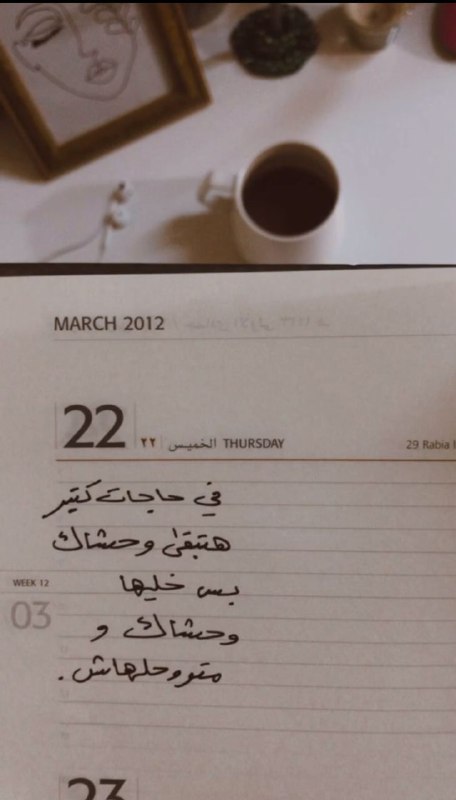 MARCH 2012
22 ٢٢ الخميس THURSDAY 29 Rabia
في حاجات كتير
هتبقى وحشاك
WEEK 12
بس خليها
03
وحشاك و
متروحلهاش.
23